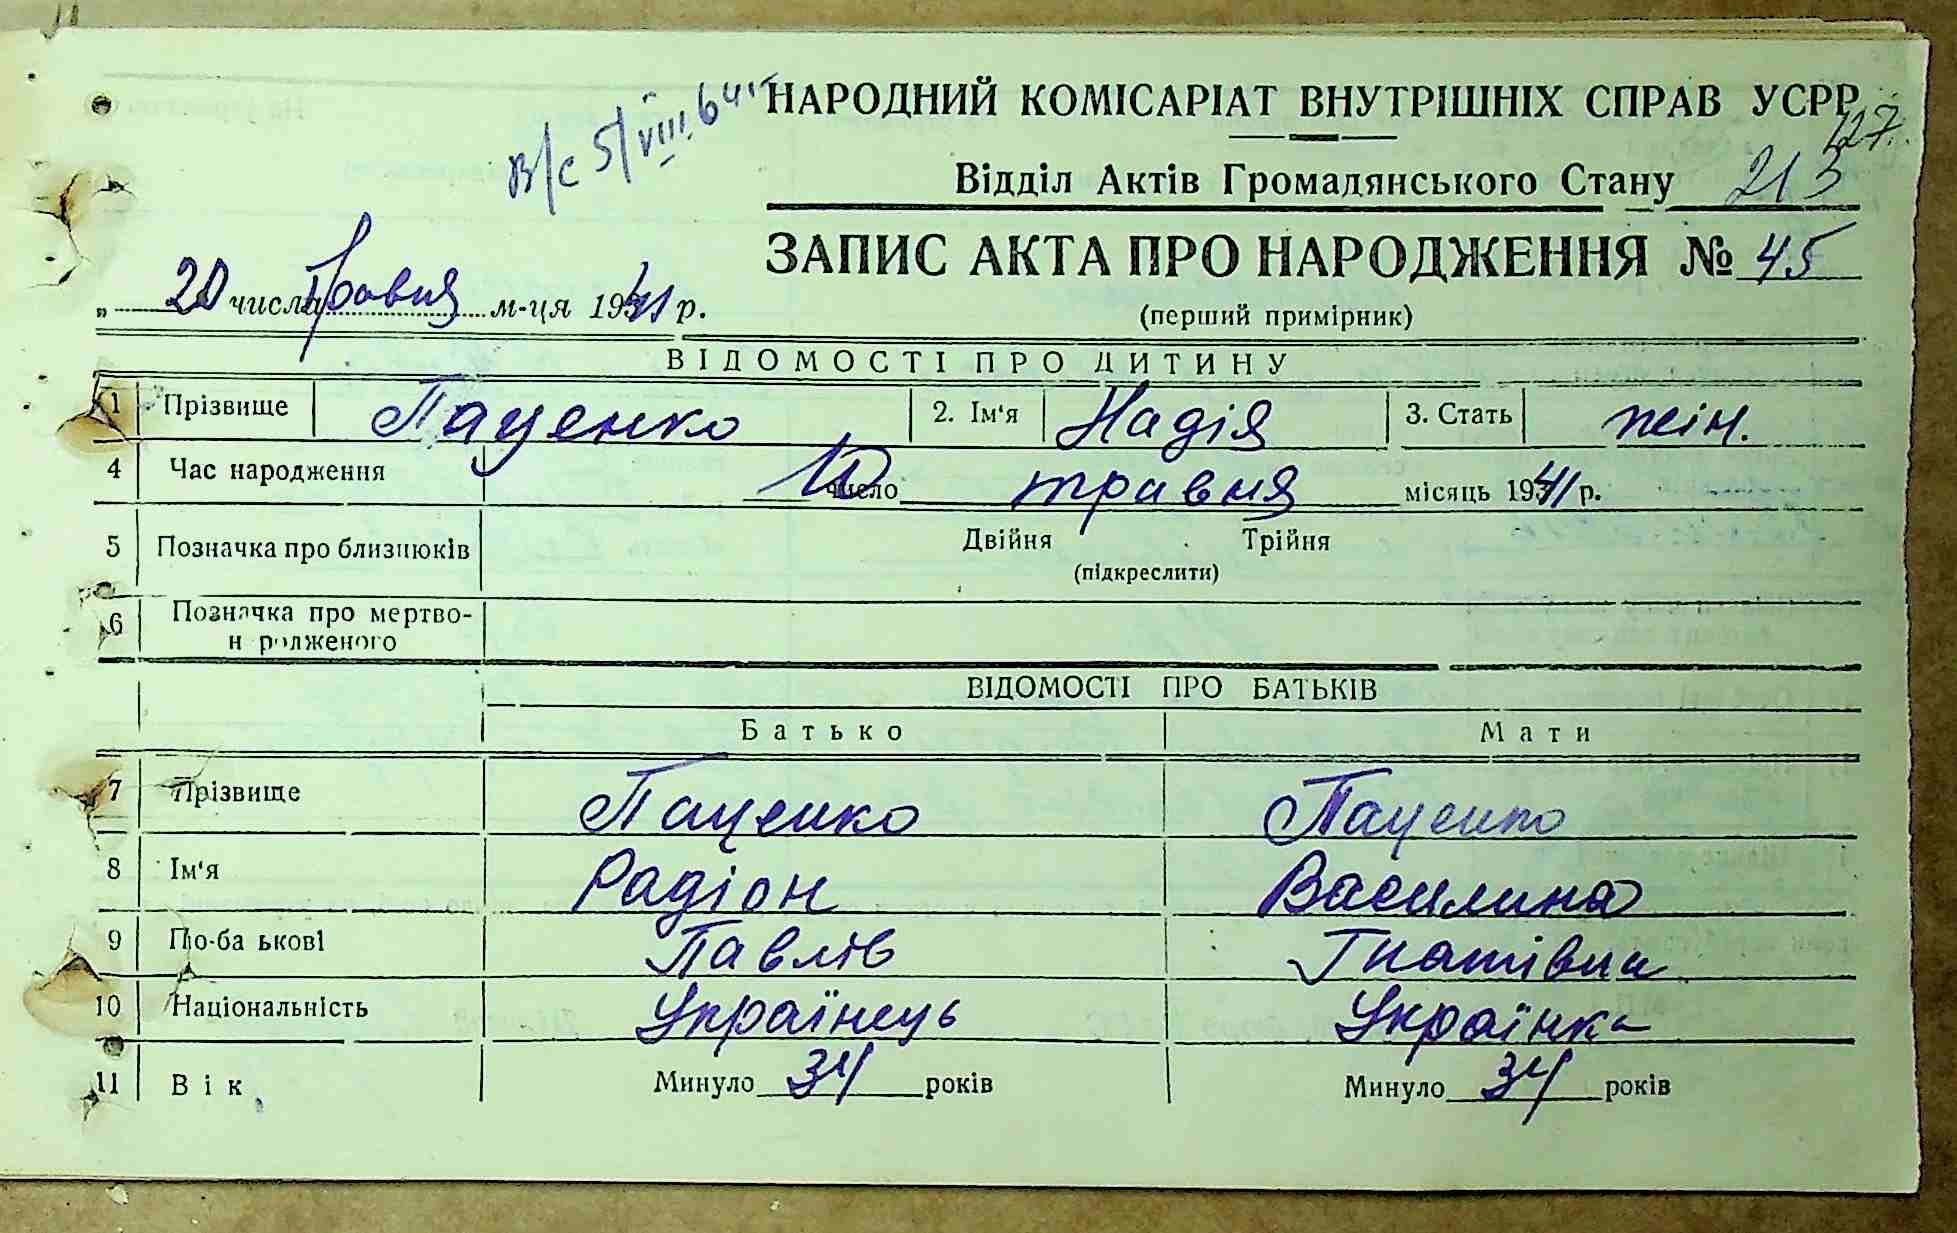 В/с 5/VIII.64г
НАРОДНИЙ КОМІСАРІАТ ВНУТРІШНІХ СПРАВ УСРР
127.
Відділ Актів Громадянського Стану 213
ЗАПИС АКТА ПРО НАРОДЖЕННЯ № 45
„ 20 числа Травня м-ця 1941 р.
(перший примірник)
ВІДОМОСТІ ПРО ДИТИНУ
1 Прізвище Паценко 2. Ім'я Надія 3. Стать жін.
4 Час народження 10 число травня місяць 1941 р.
5 Позначка про близнюків Двійня Трійня
(підкреслити)
6 Позначка про мертво-
н родженого
ВІДОМОСТІ ПРО БАТЬКІВ
Батько Мати
7 Прізвище Паценко Паценко
8 Ім'я Радіон Василина
9 По-ба ькові Павлів Гнатівна
10 Національність Українець Українка
11 Вік Минуло 34 років Минуло 34 років